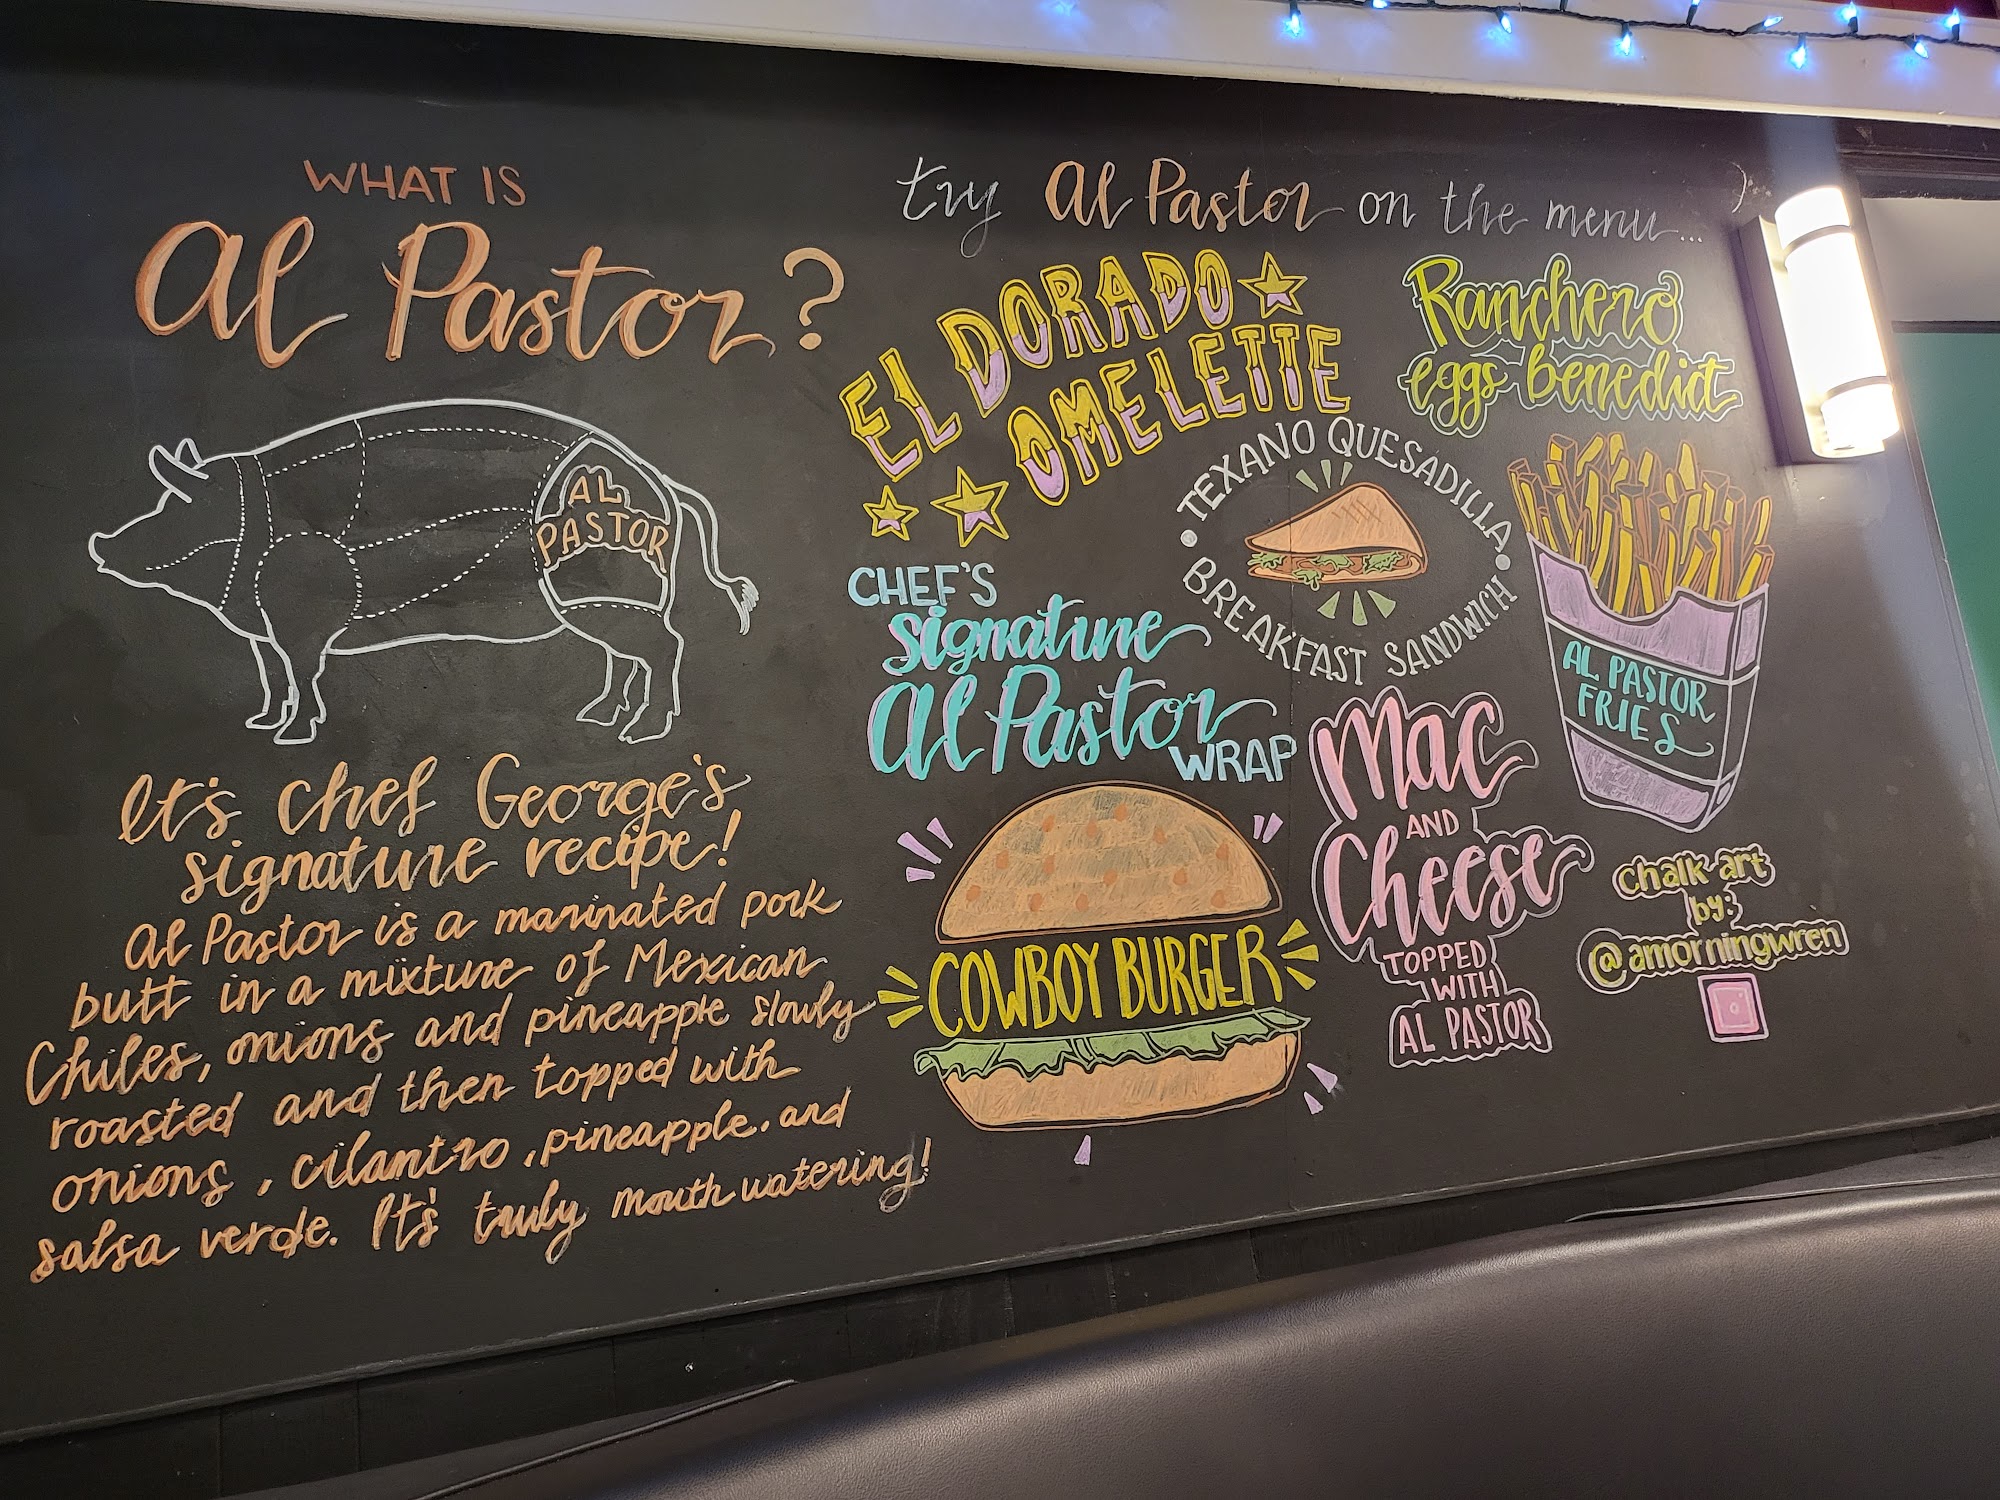 WHAT IS
al Pastor?
AL
PASTOR
It's chef George's
signature recipe!
al Pastor is a marinated pork
butt in a mixture of Mexican
Chiles, onions and pineapple slowly
roasted and then topped with
onions, cilantro, pineapple, and
salsa verde. It's truly mouth watering!
try al Pastor on the menu...
EL DORADO
OMELETTE
Ranchero
eggs benedict
TEXANO QUESADILLA
BREAKFAST SANDWICH
AL PASTOR
FRIES
CHEF'S
signature
al Pastor
WRAP
Mac
AND
Cheese
TOPPED
WITH
AL PASTOR
COWBOY BURGER
chalk art
by:
@amorningwren